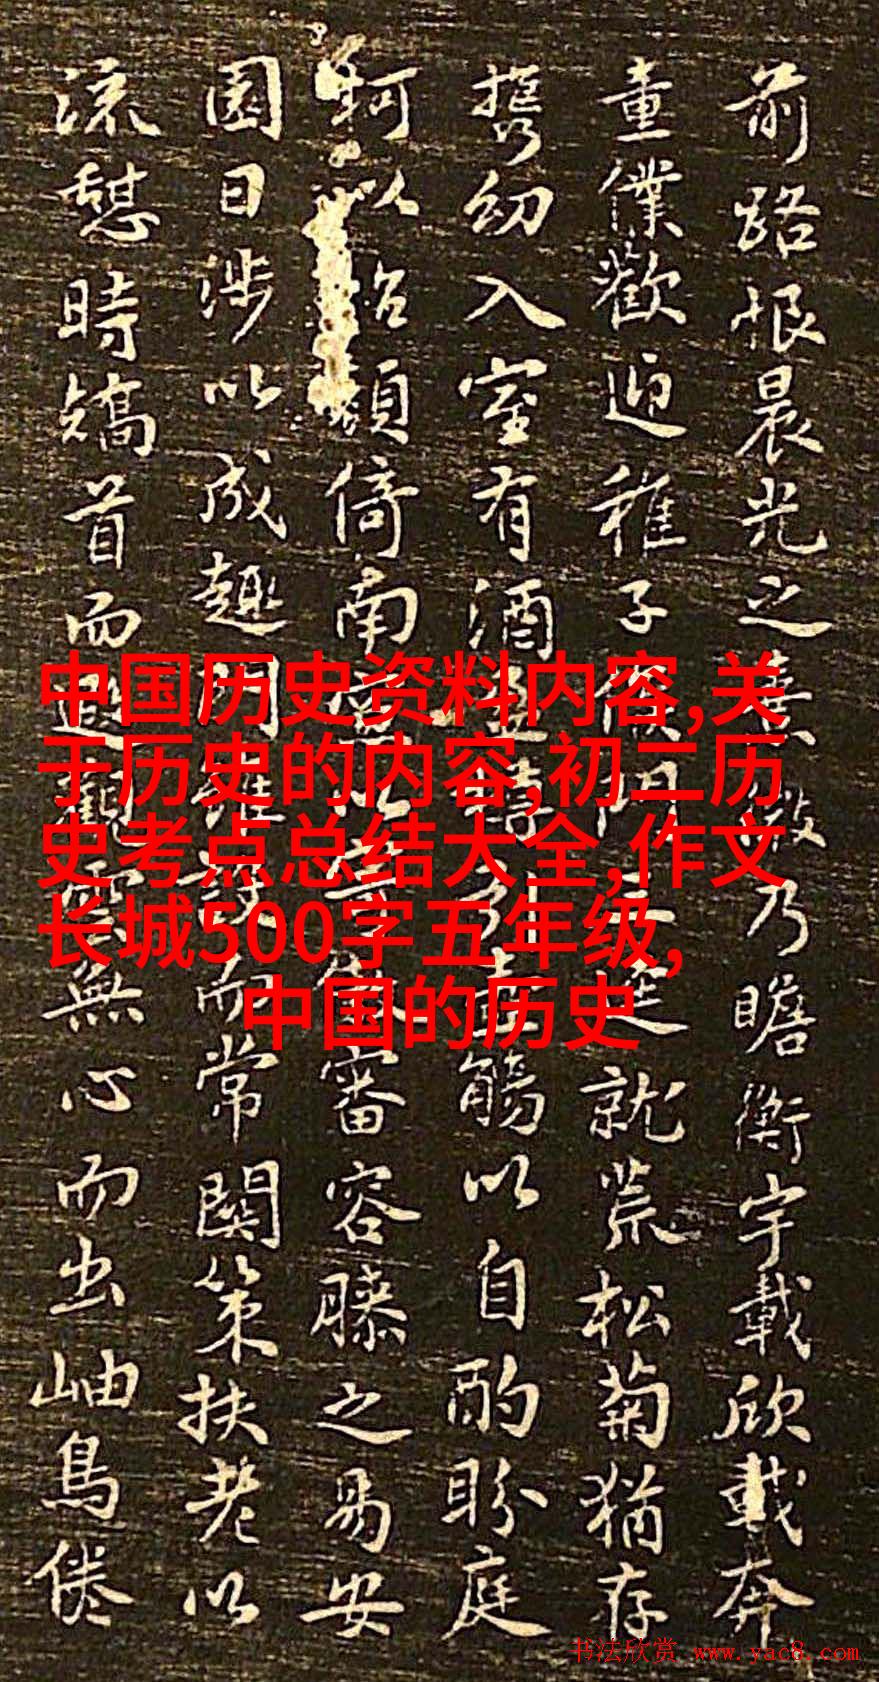 前路恨晨光之熹微乃瞻衡宇載欣載奔
童僕歡迎稚子候門三逕就荒松菊猶存
携幼入室有酒盈樽引壺觴以自酌盼庭
柯以怡顏倚南窗以寄傲審容膝之易安
園日涉以成趣門雖設而常關策扶老以
流憩時矯首而遐觀雲無心而出岫鳥倦
中国历史资料内容,关
于历史的内容,初二历
史考点总结大全,作文
长城500字五年级,
中国的历史
书法欣赏 www.yac8.com